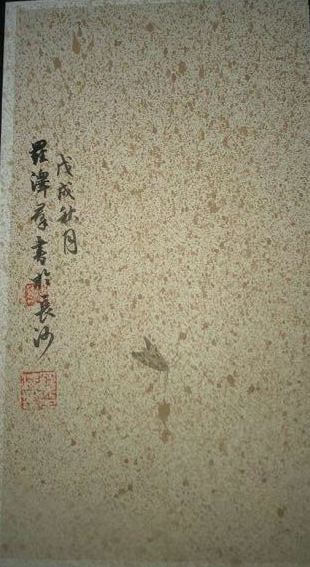 戊戌秋月
羅澤存書於長沙